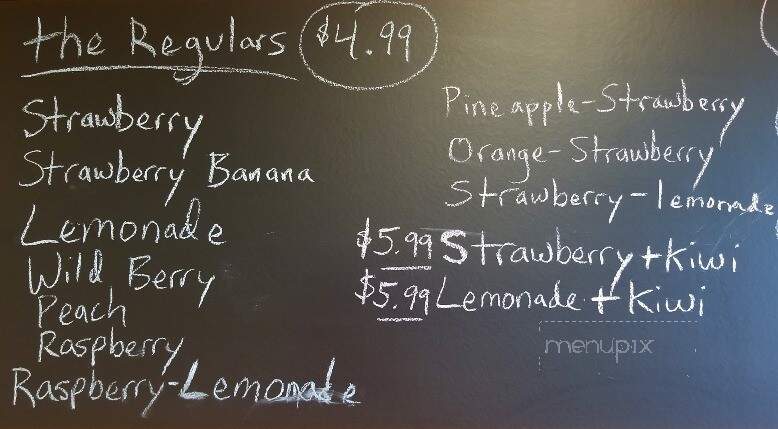 the Regulars $4.99
Strawberry
Strawberry Banana
Lemonade
Wild Berry
Peach
Raspberry
Raspberry-Lemonade
Pineapple-Strawberry
Orange-Strawberry
Strawberry-lemonade
$5.99 Strawberry + kiwi
$5.99 Lemonade + kiwi
menupix